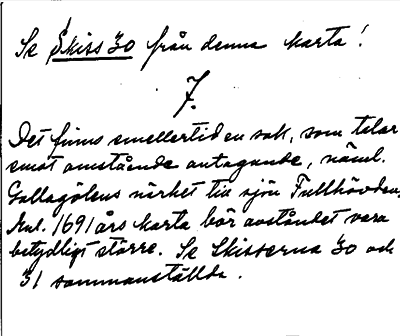 Se Skiss 30 från denna karta!
7.
Det finns emellertid en sak, som talar
emot omstående antagande, näml.
Gallagölens närhet till sjön Fullhövden.
Enl. 1691 års karta bör avståndet vara
betydligt större. Se Skisserna 30 och
31 sammanställda.